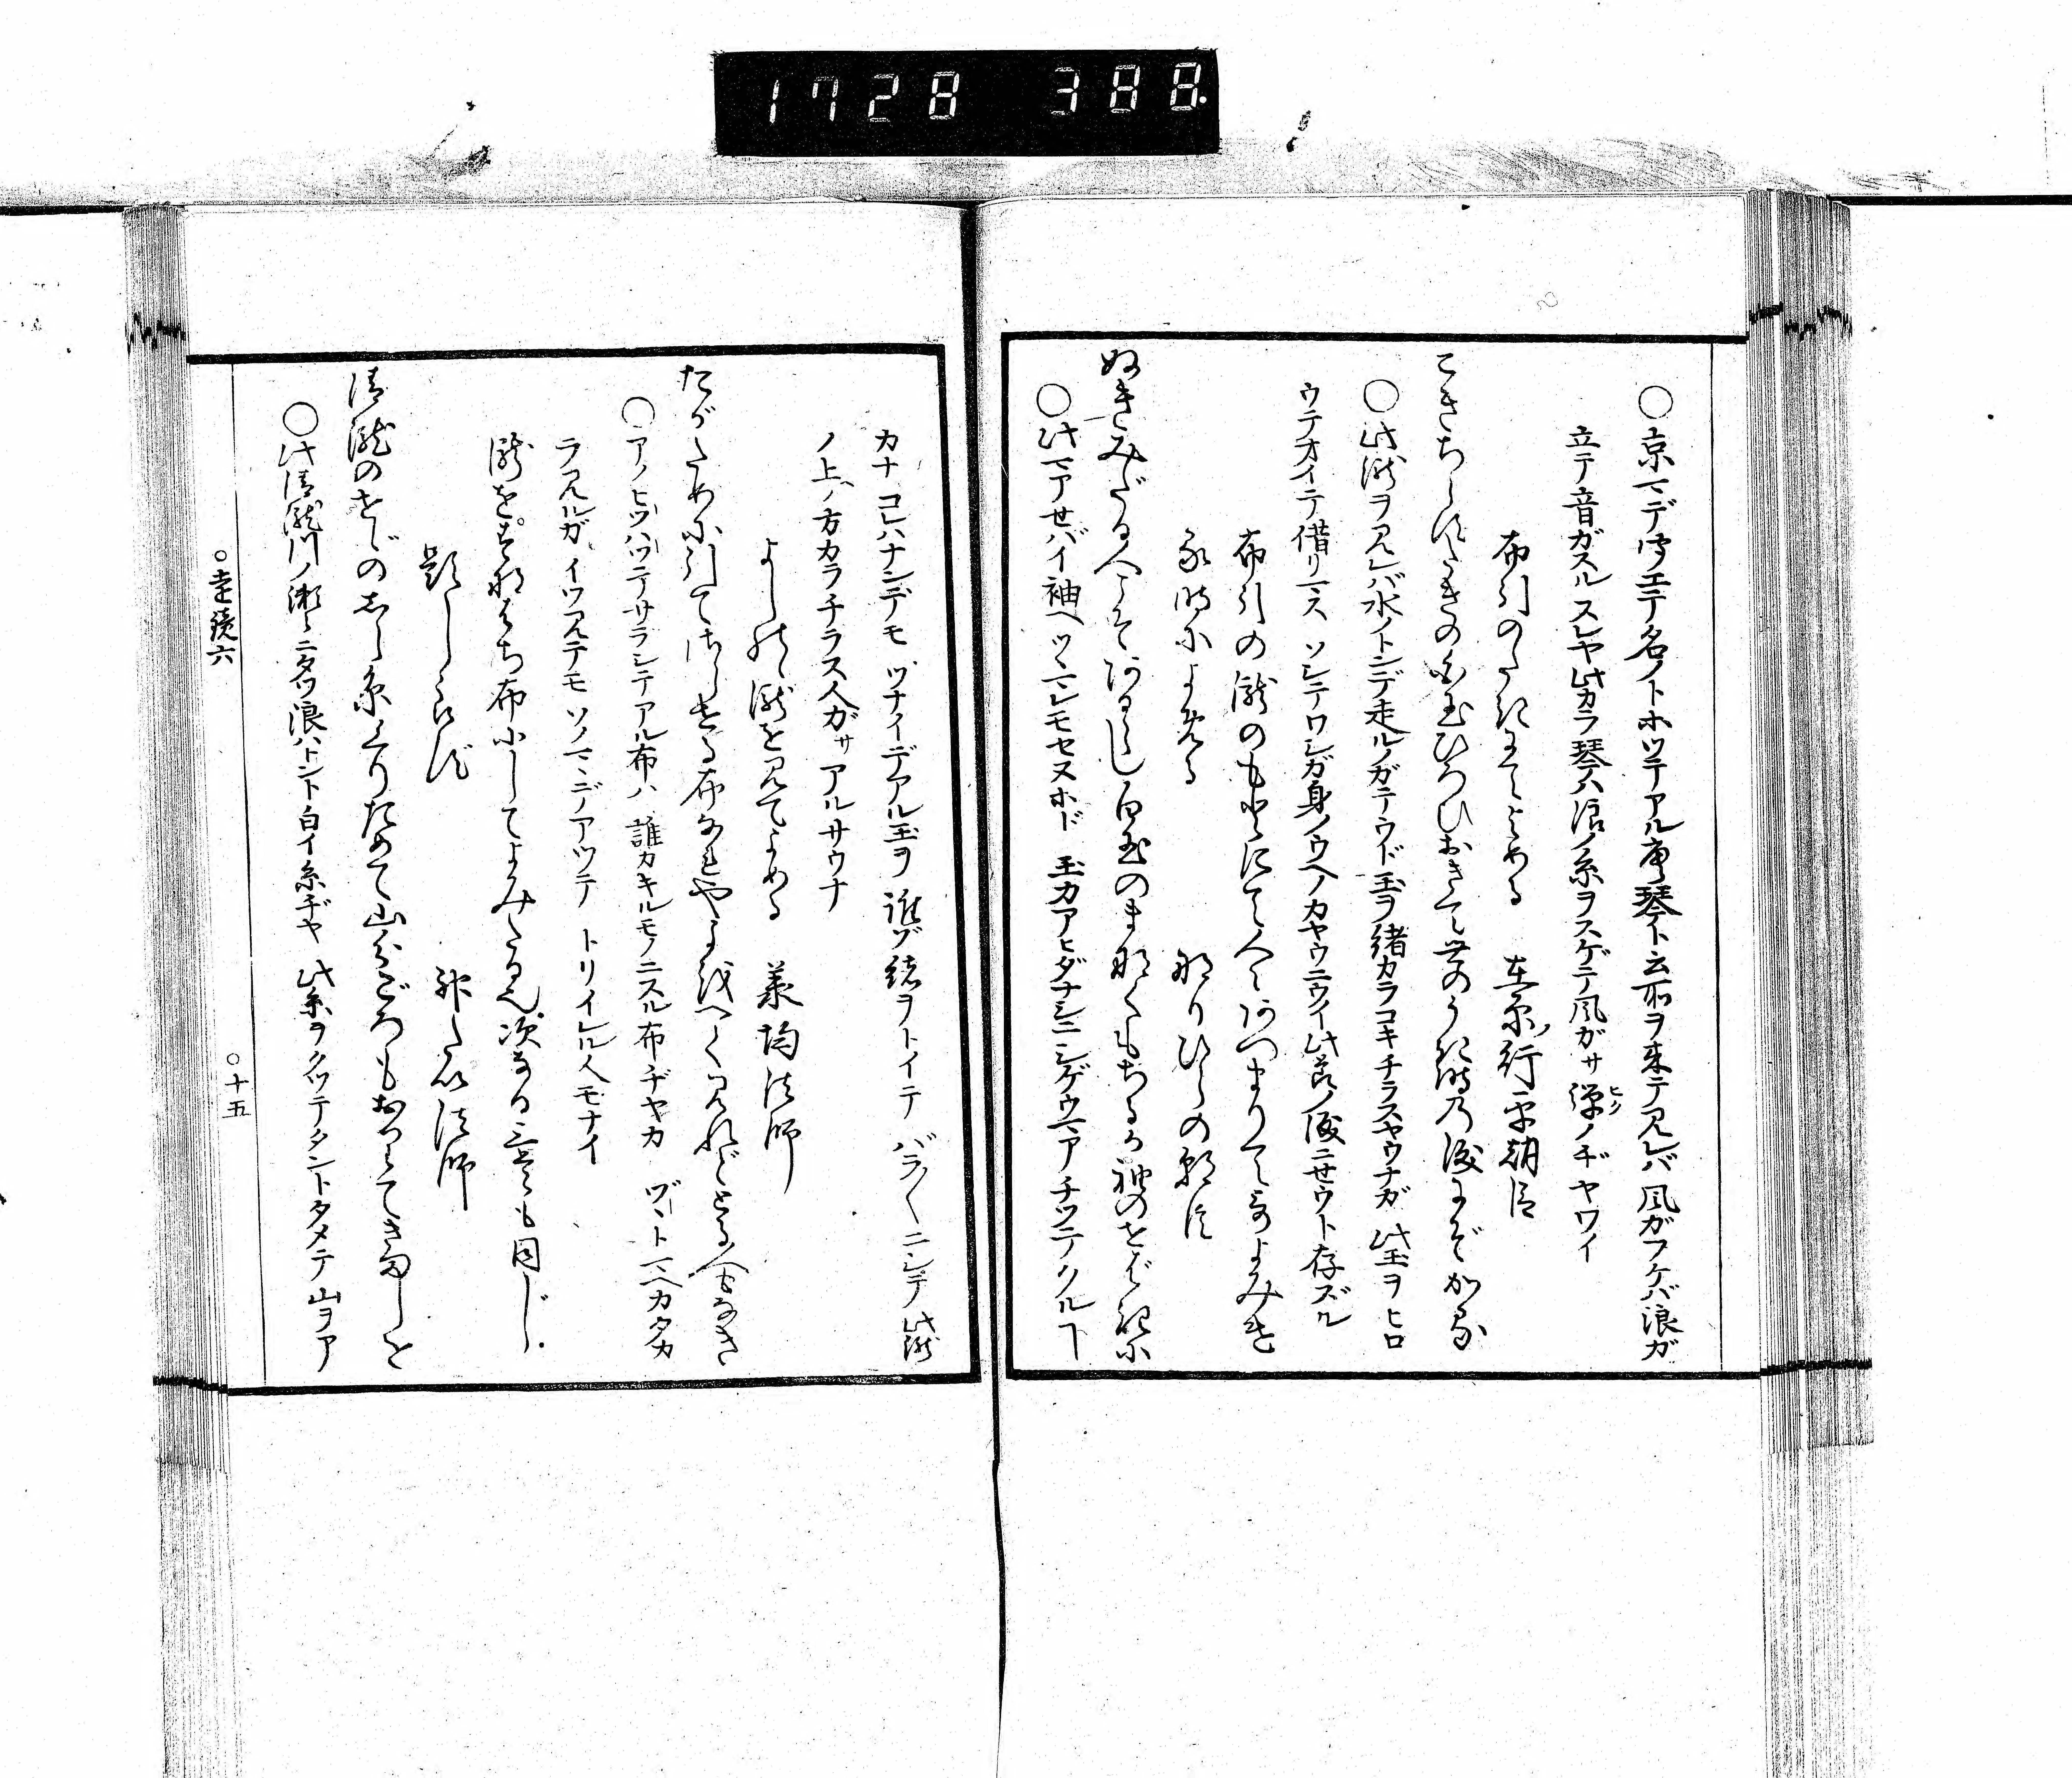 1728 388.
○京マデ聞エテ名ノトホツテアル唐琴ト云所ヲ来テ見レバ 風ガフケバ浪ガ
立テ音ガスル スレヤ此カラ琴ハ浪ノ糸ヲスゲテ風ガサ弾ノヂヤワイ
ヒク
布引のたきにてよめる 在原行平朝臣
こきちらすたきの白玉ひろひおきて世のうき時の涙にぞかる
○此瀧ヲ見レバ水ノトンデ走ルノガテウド玉ヲ緒カラコキチラスヤウナガ 此玉ヲヒロ
ウテオイテ借リマス ソシテワシガ身ノウヘノカヤウニウイ此節ノ涙ニセウト存ズル
布引の瀧のもとにて人々あつまりて歌よみけ
る時によめる なりひらの朝臣
ぬきみだる人こそあるらし白玉のまなくもちるか袖のせばきに
○此マアせバイ袖ヘ ツヽマレモセヌホド 玉カアヒダナシニシゲウマアチツテクルヿ
カナ コレハナンデモ ツナイデアル玉ヲ 誰ゾ緒ヲトイテ バラ〱ニシテ 此瀧
ノ上ノ方カラチラス人ガサ アルサウナ
よしのゝ瀧を見てよめる 承均法師
たがために引てさらせる布なれや世を経て見れどとる人もなき
○アノヒツハツテサラシテアル布ハ 誰カキルモノニスル布ヂヤカ ヅヽトマヘカタカ
ラ見ルガ イツ見テモ ソノマヽデアツテ トリイレル人モナイ
瀧をすなはち布にしてよみたる也 次なる三首も同じ.
題しらず 神たい法師
清瀧のせゞのしら糸くりためて山分ごろもおりてきましを
○此清瀧川ノ瀬々ニタツ浪ハトント白イ糸ヂヤ 此糸ヲクツテタントタメテ 山ヲア
○遠鏡六 ○十五